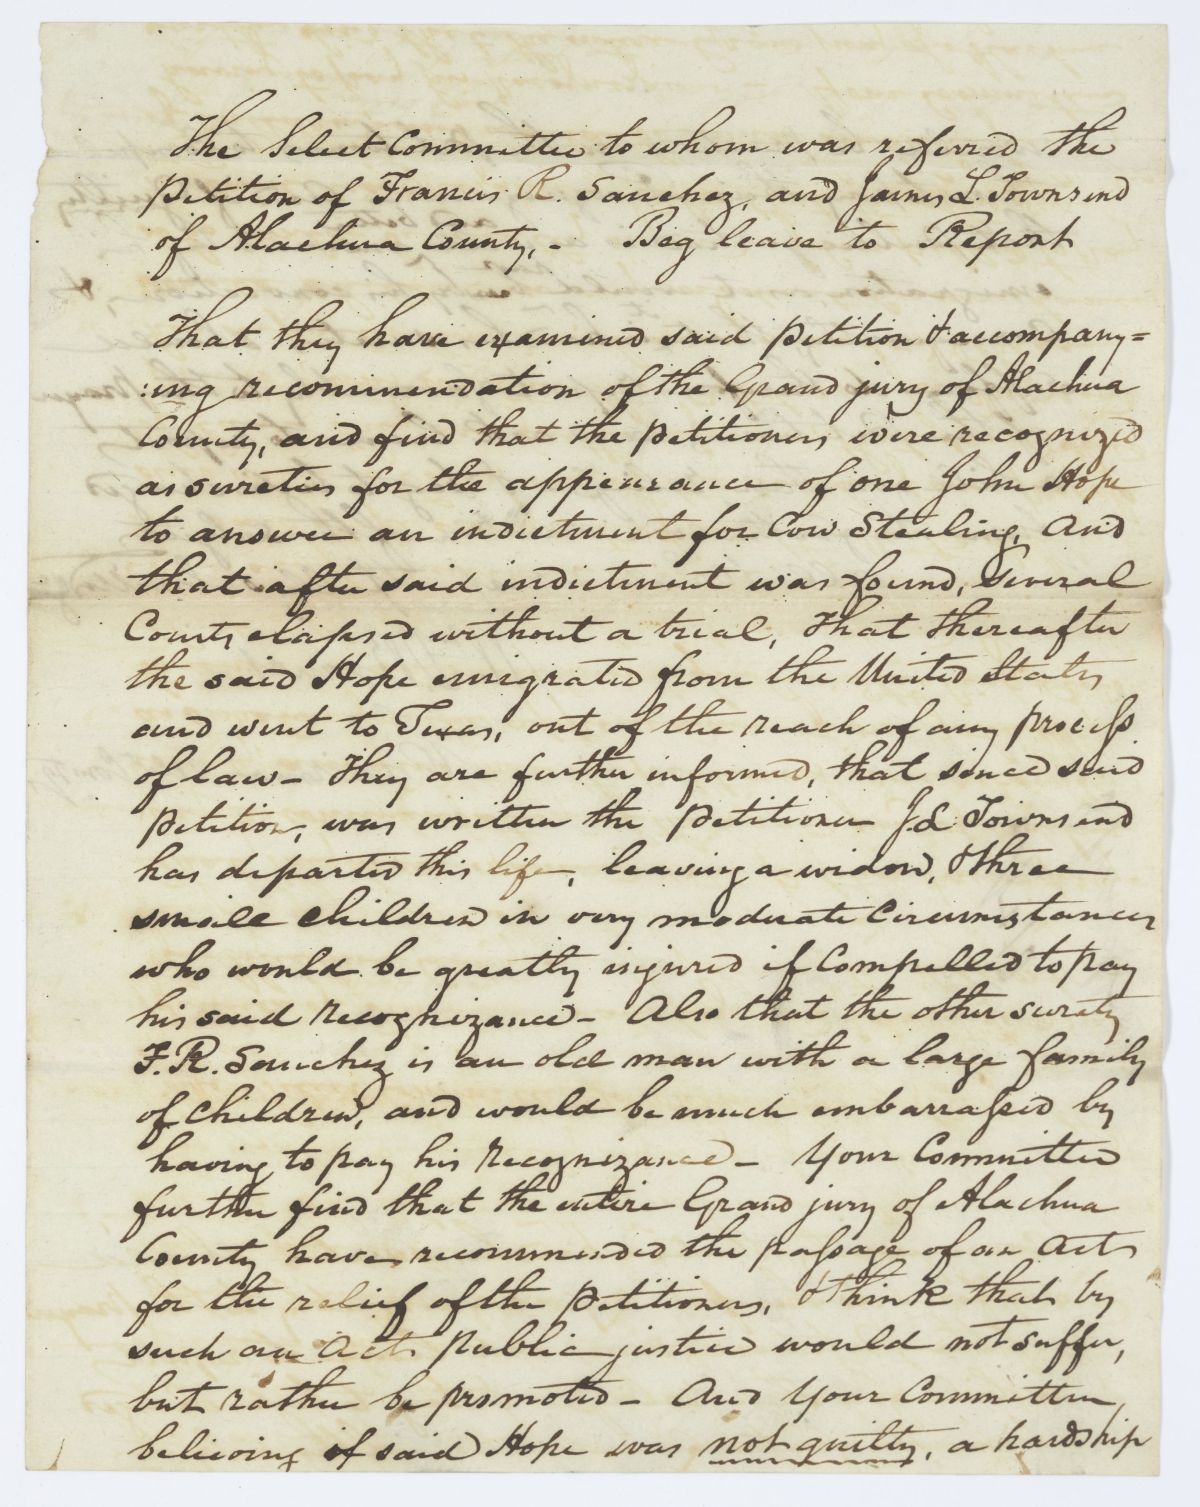 The Select Committee to whom was referred the
petition of Francis R. Sanchez, and James L. Townsend
of Alachua County, - Beg leave to Report
That they have examined said petition & accompany=
:ing recommendation of the Grand jury of Alachua
County, and find that the petitioners were recognized
as sureties for the appearance of one John Hope
to answer an indictment for Cow Stealing, And
that after said indictment was found, several
Courts elapsed without a trial, that thereafter
the said Hope emigrated from the United States
and went to Texas, out of the reach of any process
of law - They are further informed, that since said
petition, was written the petitioner J L Townsend
has departed this life, leaving a widow, & three
small children in very moderate circumstances
who would be greatly injured if compelled to pay
his said recognizance - Also that the other surety
F. R. Sanchez is an old man with a large family
of children, and would be much embarrassed by
having to pay his recognizance - Your Committee
further find that the entire Grand jury of Alachua
County have recommended the passage of an Act
for the relief of the petitioners, & think that by
such an Act public justice would not suffer,
but rather be promoted - And Your Committee
believing if said Hope was not guilty, a hardship